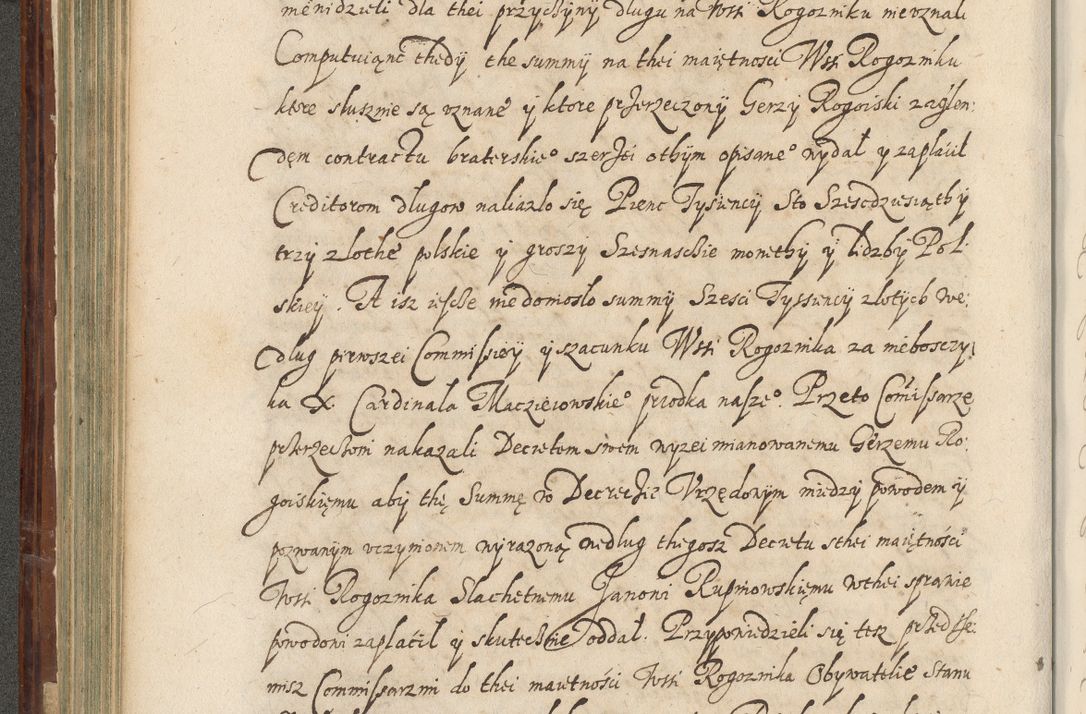 menidzieli dla thei przyczyny dlugu na Wsi Rogozniku nieuznali
Computuiąnc thedy the summy na thei maiętnosci Wsi Rogozniku
ktore slusznie są uznane y ktore przerzeczony Gerzy Rogoiski zaglen:
dem contractu braterskie° szerzei othym opisane° wydał y zaplacil
Creditorom dlugow naliazlo się Pienc Tysiency Sto Szescdziesiąth y
trzy zlothe polskie y groszy Szesnasczie monethy y lidzby Pol
skiey. A isz iescze niedomoslo summy Szesci Tyssiency zlotych we:
dlug pierwszei Commissiey y szacunku Wsi Rogoznika za nieboszczy
ka X. Cardinala Macziejowskie° przodka nasze°. Przeto Comissarze
przerzeczoni nakazali Decretem swem wyzei mianowanemu Gerzemu Ro:
goiskięmu aby thę Summę w Decrecie Urzędowym miedzy powodem y
pozwanym uczynionem wyrazoną wedlug thegosz Decretu sthei maiętności
Wsi Rogoznika Slachetnemu Janowi Rupniowskięmu wthei sprawie
powodowi zaplacil y skutecznie oddal. Przypowiedzieli się tesz przed the:
misz Commissarzmi do thei maiętności Wsi Rogoznika Obywatelie Stanu